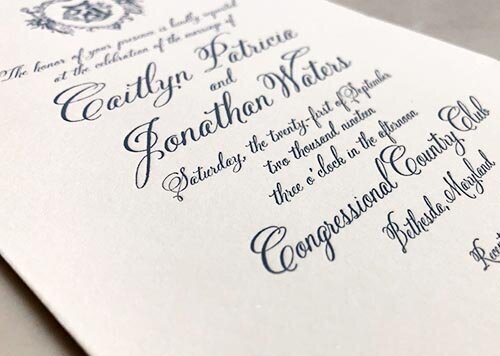 The honor of your presence is kindly requested
at the celebration of the marriage of
Caitlyn Patricia
and
Jonathan Waters
Saturday, the twenty-first of September
two thousand nineteen
three o'clock in the afternoon
Congressional Country Club
Bethesda, Maryland